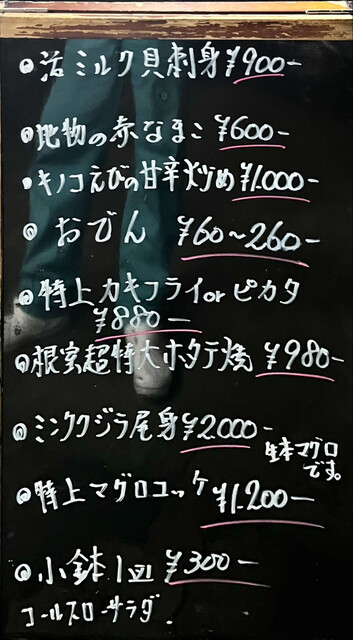 ◎活ミルク貝刺身¥900-
◎地物の赤なまこ ¥600-
◎キノコえびの甘辛炒め¥1.000-
◎おでん ¥60〜260-
◎特上カキフライorピカタ
¥880-
◎根室超特大ホタテ焼 ¥980-
◎ミンククジラ尾身¥2.000-
生本マグロ
です。
◎特上マグロユッケ ¥1.200-
◎小鉢1皿 ¥300-
コールスローサラダ.